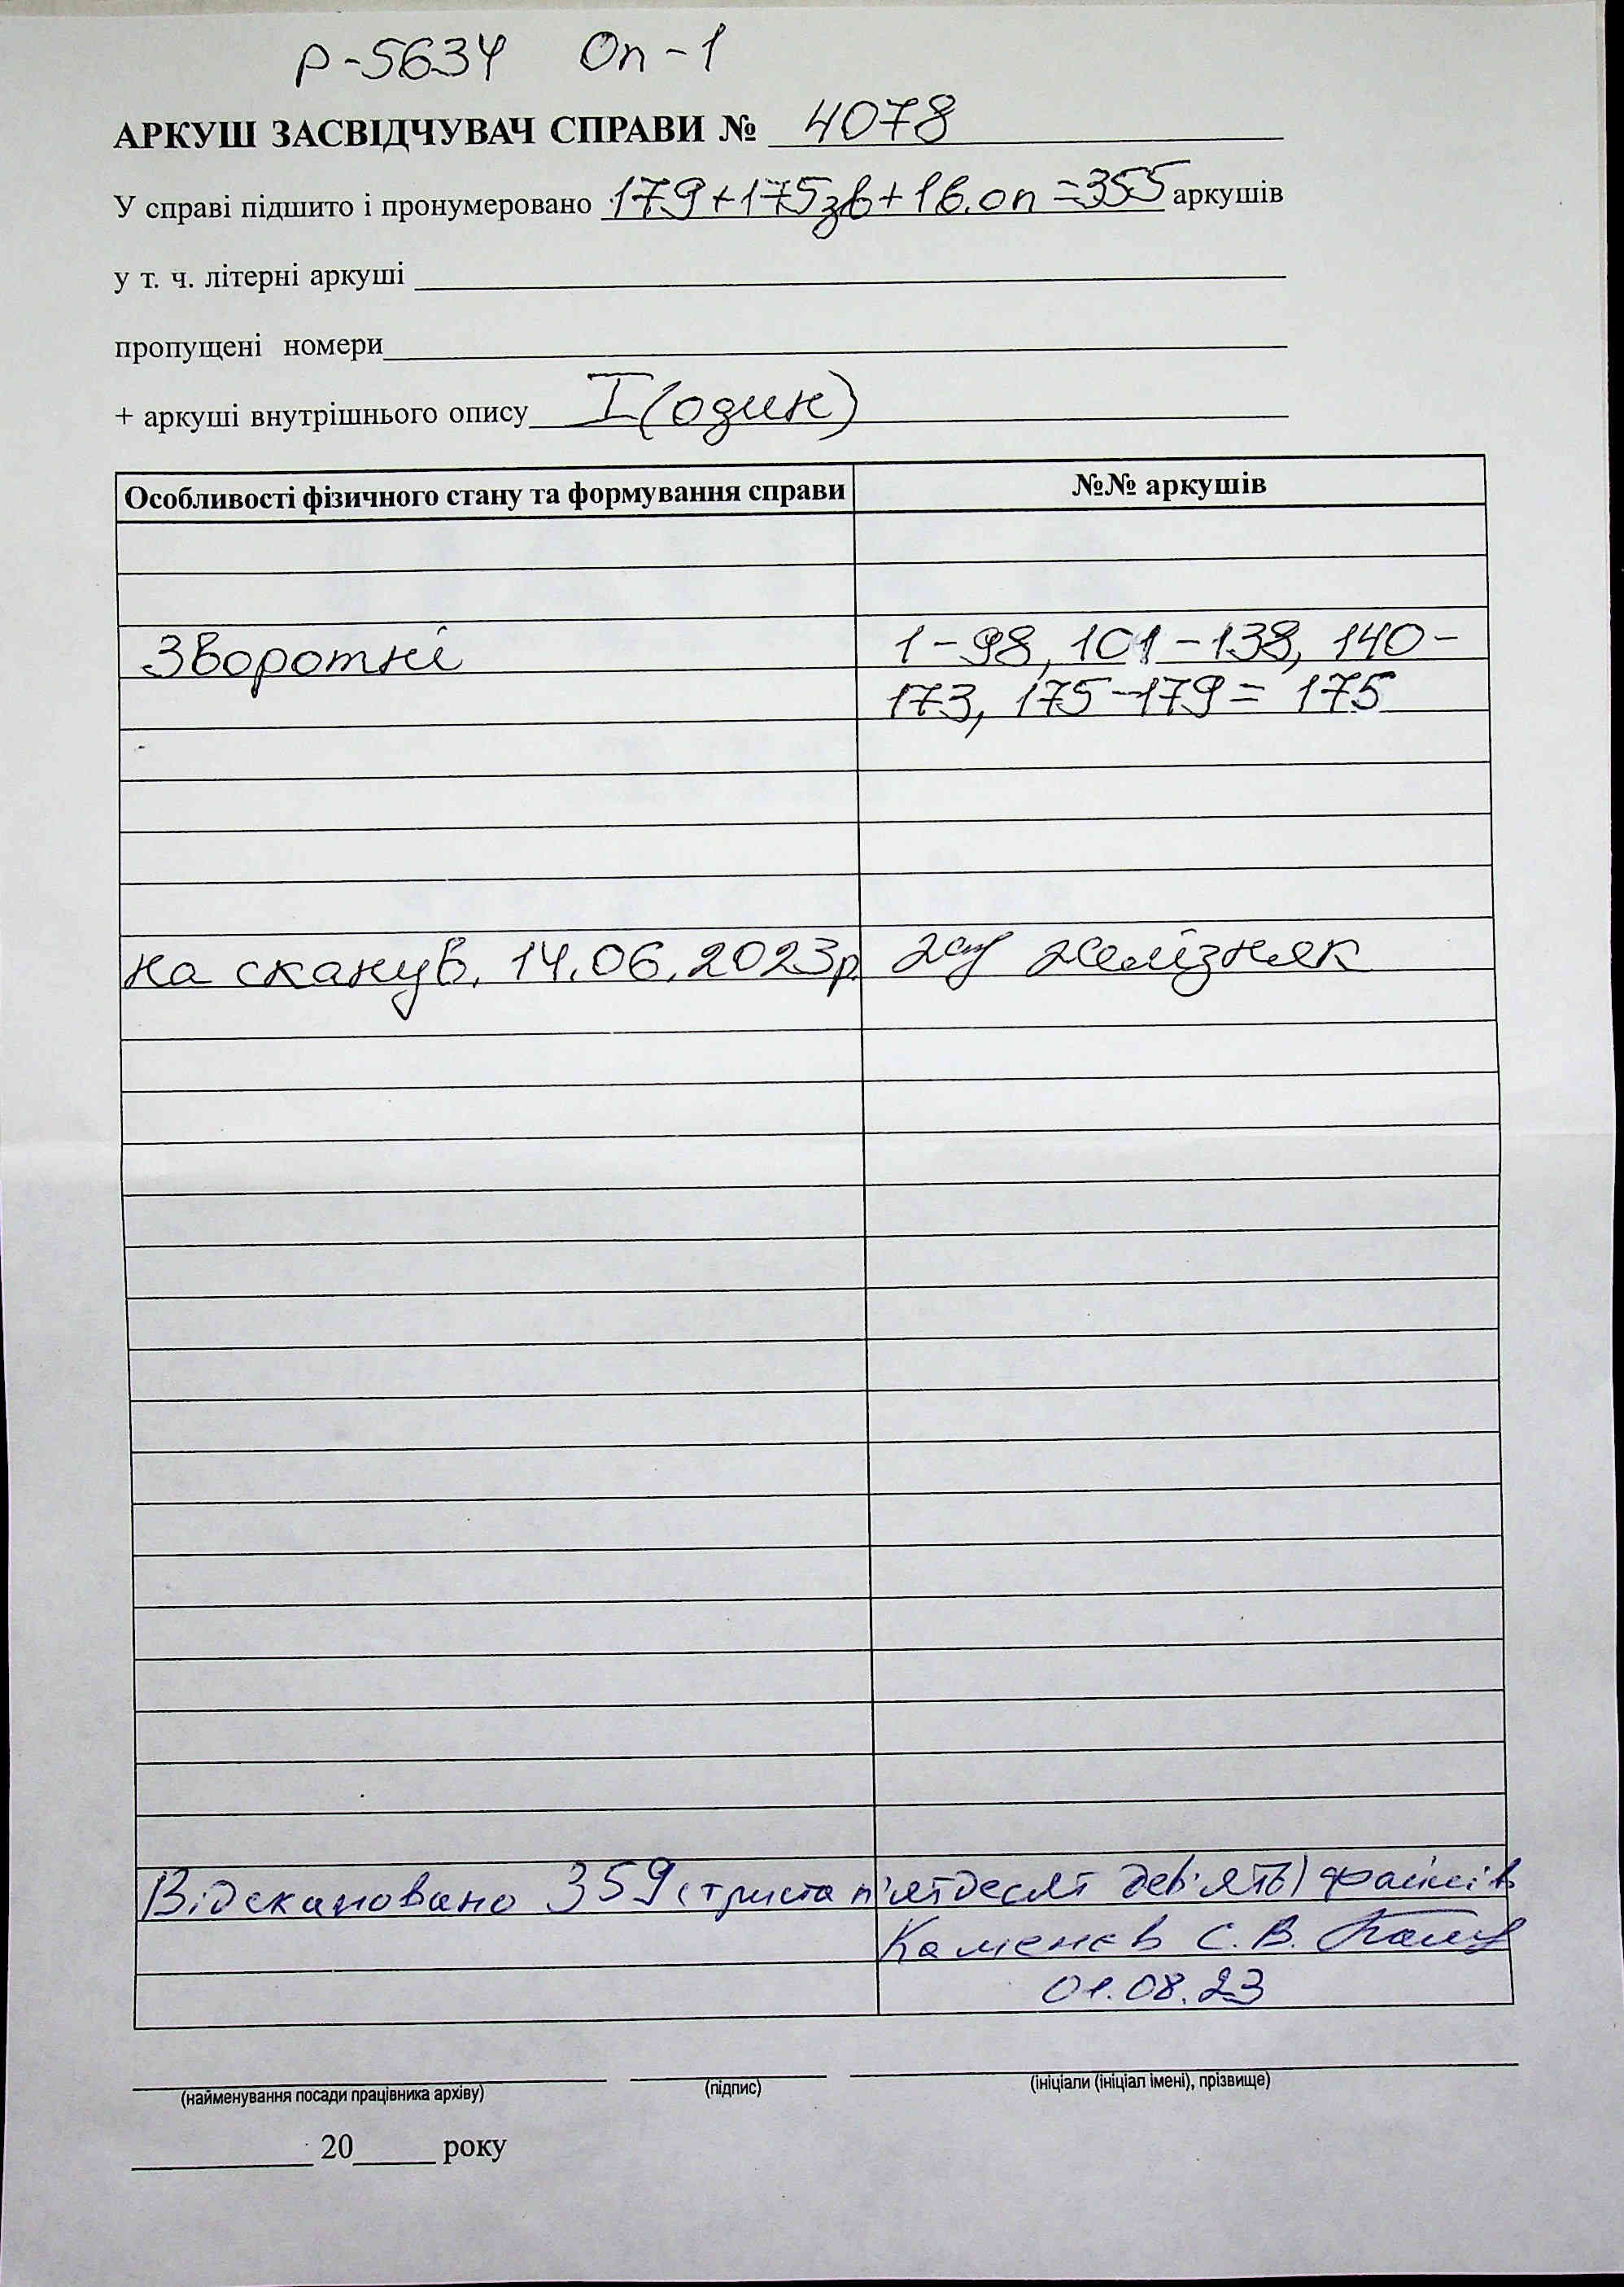 Р-5634 Оп-1
АРКУШ ЗАСВІДЧУВАЧ СПРАВИ № 4078
У справі підшито і пронумеровано 179+175зв+1в.оп=355 аркушів
у т. ч. літерні аркуші
пропущені номери
+ аркуші внутрішнього опису I (один)
Особливості фізичного стану та формування справи №№ аркушів
Зворотні 1-98, 101-138, 140-
173, 175-179 = 175
на сканув. 14.06.2023р. Желізняк
Відскановано 359 (триста п'ятдесят дев'ять) файлів
Каменєв С.В.
01.08.23
(найменування посади працівника архіву) (підпис) (ініціали (ініціал імені), прізвище)
20 року